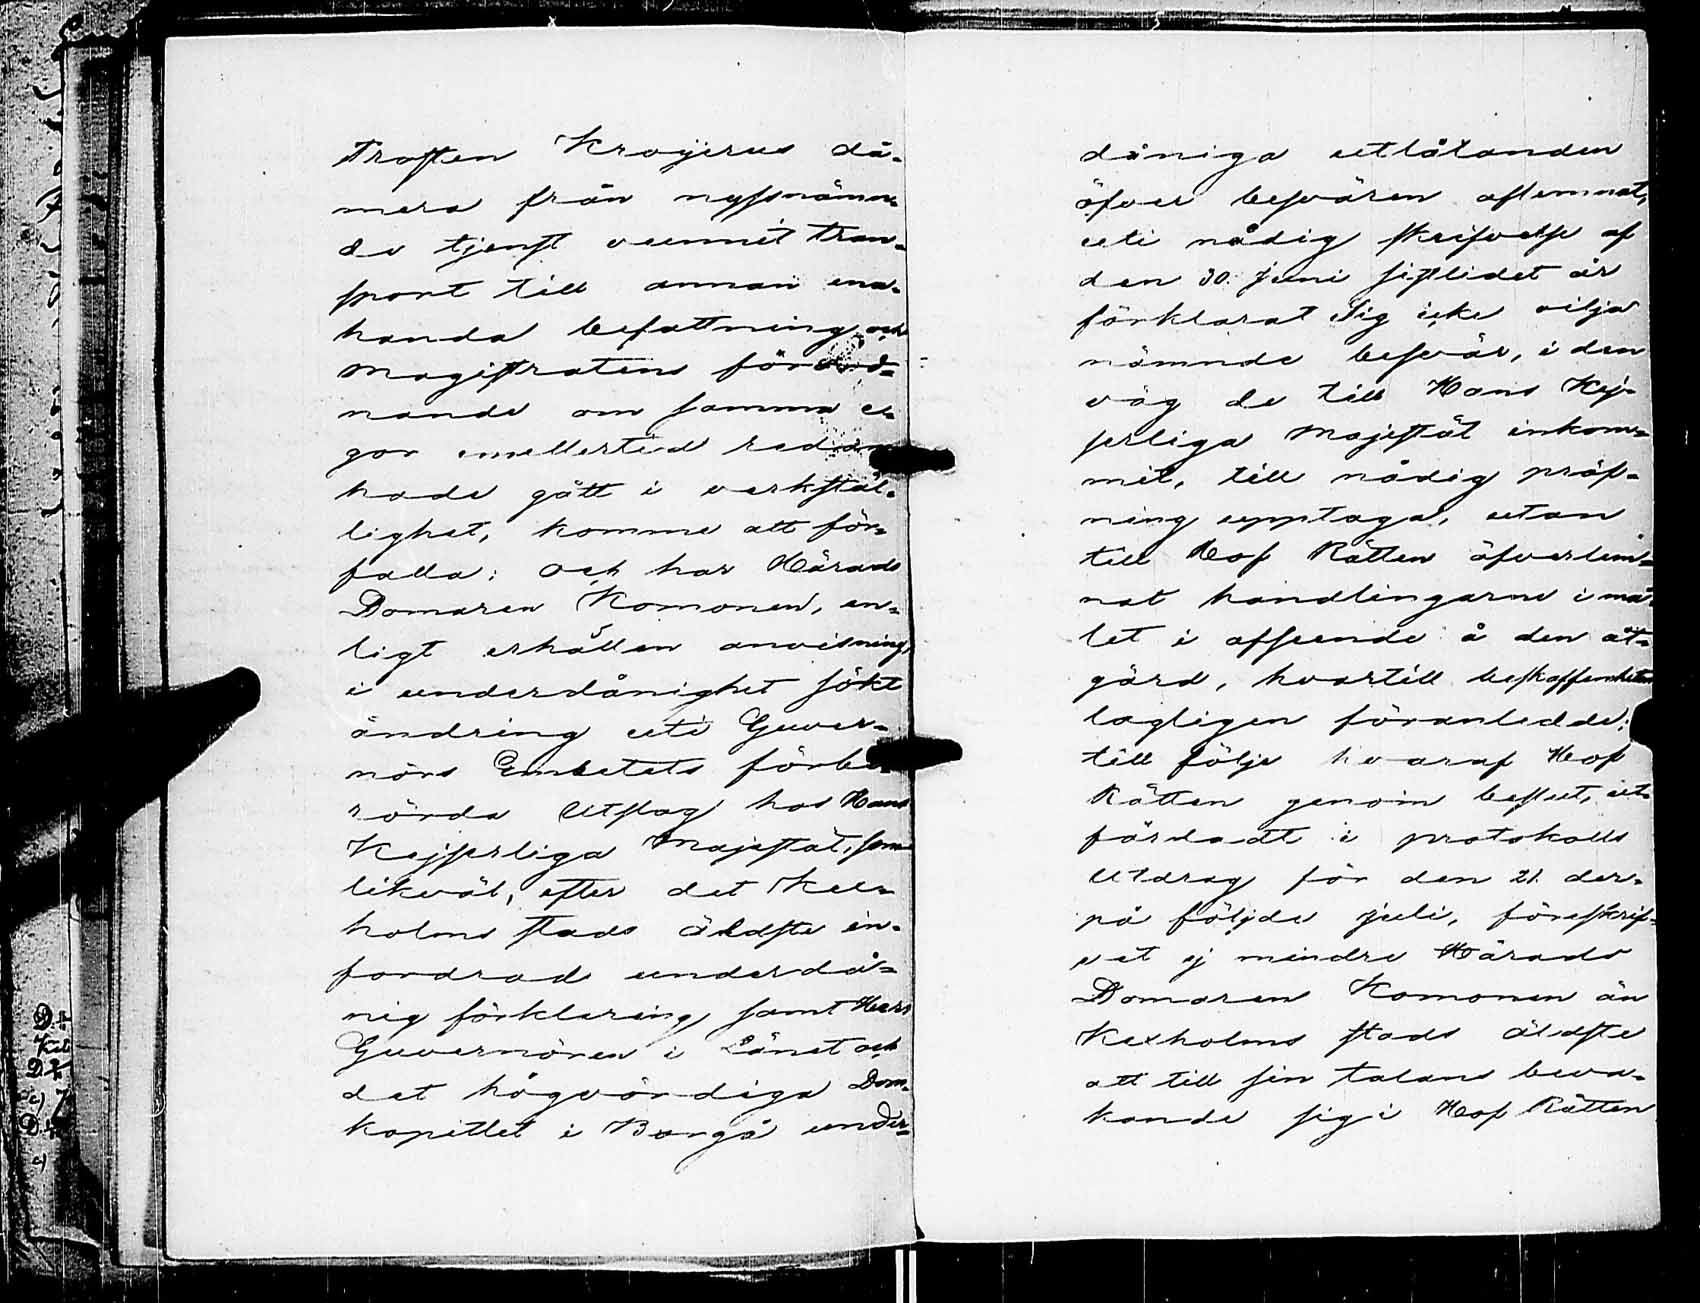 Prosten Krogerus då-
mera från nyssnämn-
de tjenst vunnit tran-
sport till annan ena-
handa befattning och
Magistratens förord-
nande om samma ve-
gor emellertid redan
hade gått i verkstäl-
lighet, komme att för-
falla; och har Härads
Domaren Komonen, en-
ligt erhållen anvisning,
i underdånighet sökt
ändring uti Guver-
nörs Embetets förbe-
rörda Utslag hos Hans
Kejserliga Majestät, som
likväl, efter det Kex-
holms stads äldste in-
fordrade underdå-
nig förklaring samt Herr
Guvernören i Länet och
det högvördiga Dom-
kapitlet i Borgå under-
dåniga utlåtanden
öfver besvären aflemnat,
uti nådig skrifvelse af
den 30. Juni sistlidet år
förklarat Sig icke vilja
nämnde besvär, i den
väg de till Hans Kej-
serliga Majestät inkom-
mit, till nådig pröf-
ning upptaga, utan
till Hof Rätten öfverlem-
nat handlingarne i må-
let i afseende å den åt-
gärd, hvartill beskaffenheten
lagligen föranledde;
till följe hvaraf Hof
Rätten genom beslut, ut-
färdadt i protokolls
Utdrag för den 21. der-
på följde juli, föreskrif-
vit ej mindre Härads
Domaren Komonen än
Kexholms stads äldste
att till sin talans beva-
kande sig i Hof Rätten